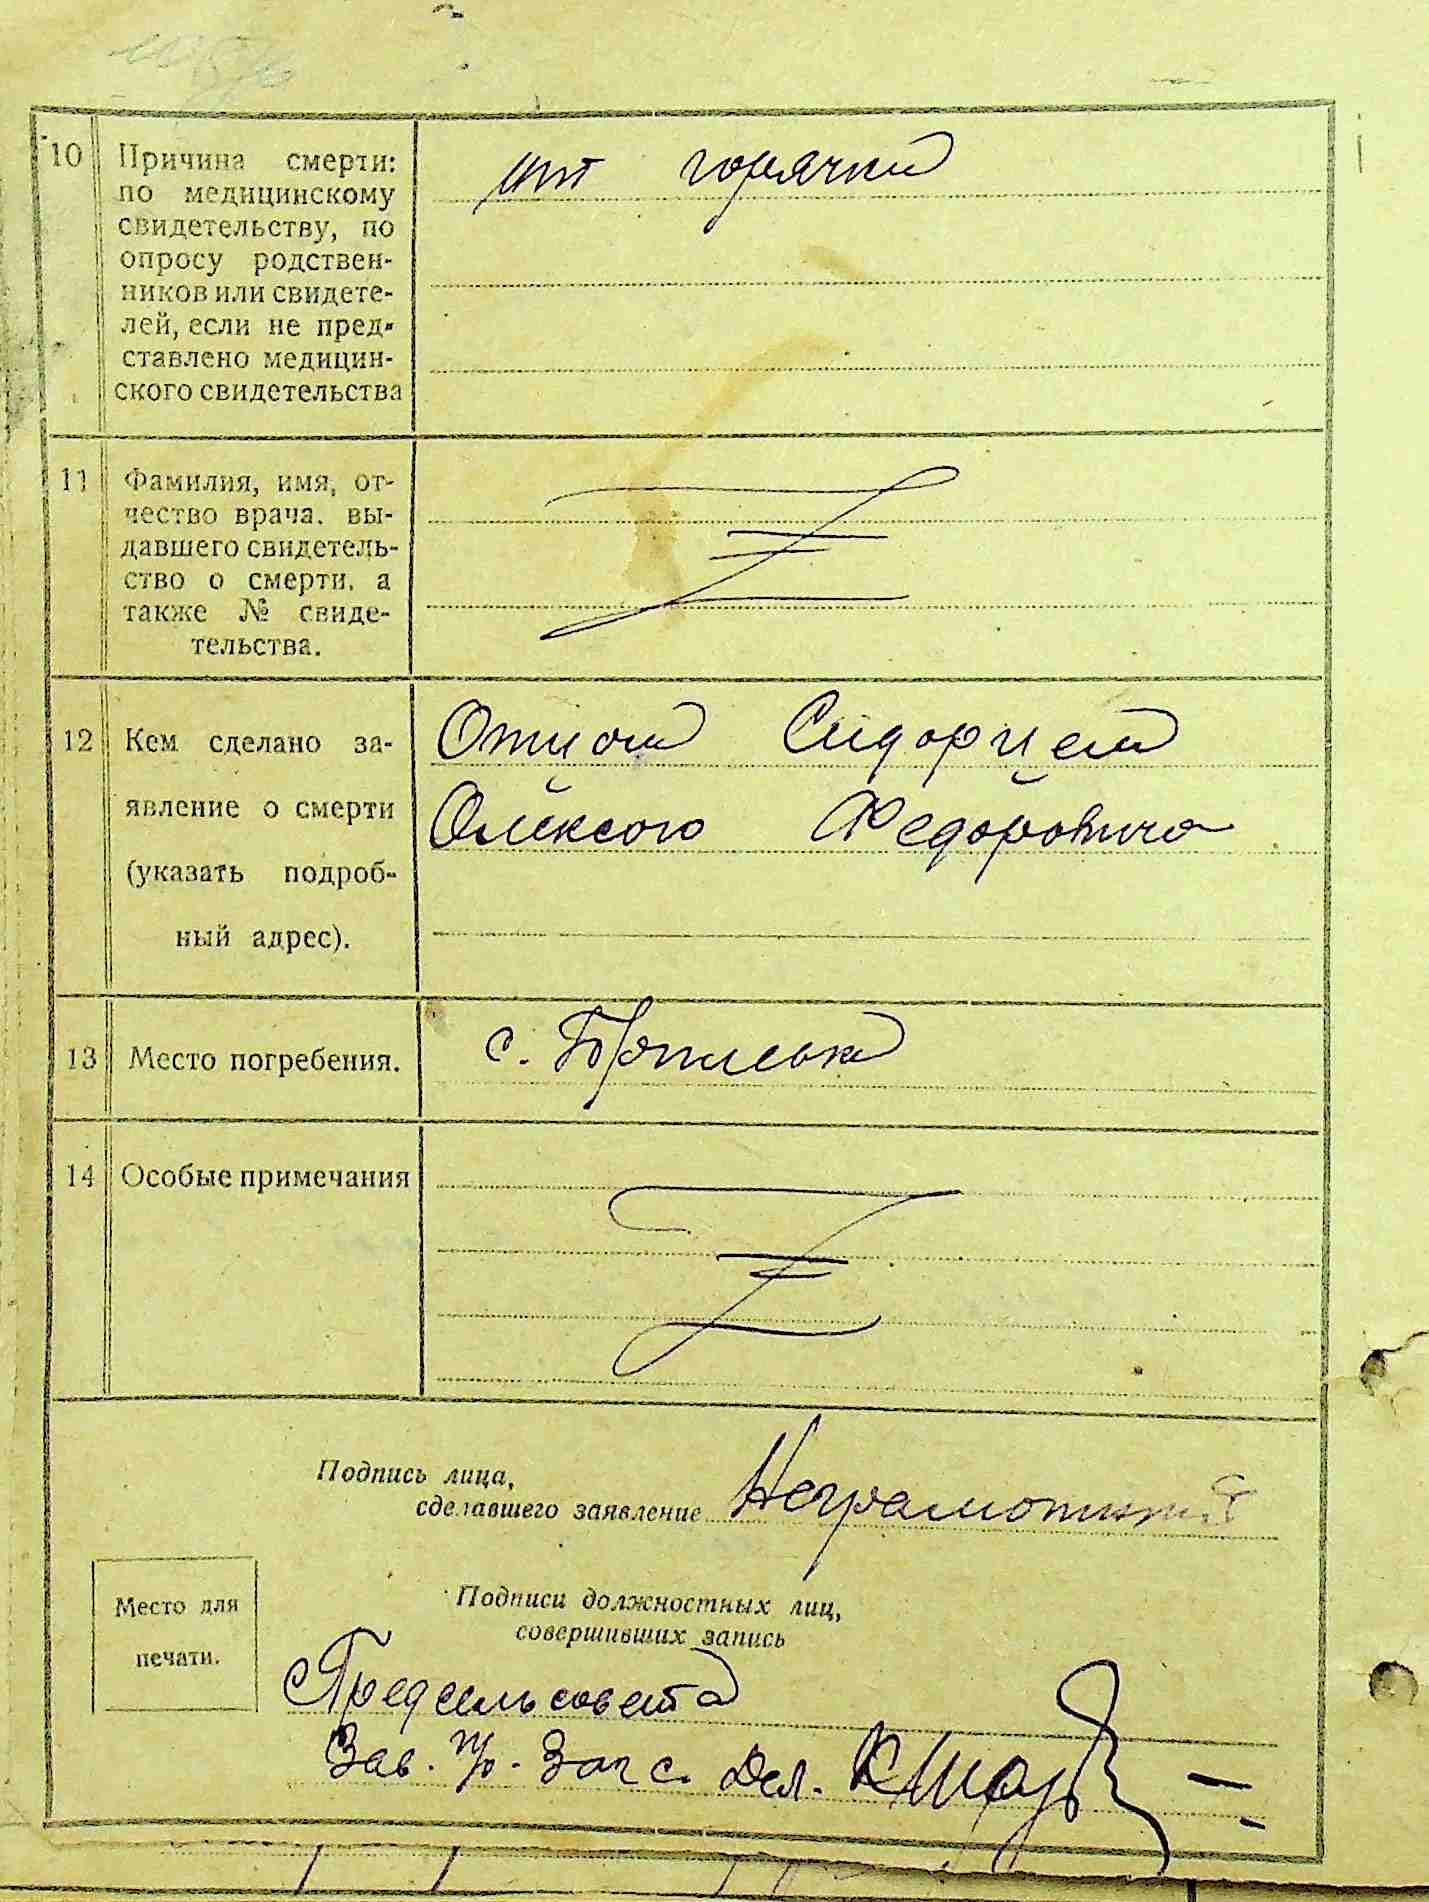 10 Причина смерти:
по медицинскому
свидетельству, по
опросу родствен-
ников или свидете-
лей, если не пред-
ставлено медицин-
ского свидетельства
горячки
11 Фамилия, имя, от-
чество врача, вы-
давшего свидетель-
ство о смерти, а
также № свиде-
тельства.
12 Кем сделано за-
явление о смерти
(указать подроб-
ный адрес).
Отцом Сидорцем
Олексою Федорович
13 Место погребения.
с.
14 Особые примечания
Подпись лица,
сделавшего заявление Неграмотний
Место для
печати.
Подписи должностных лиц,
совершивших запись
Предсельсовета
Зав. Загс. Дел.